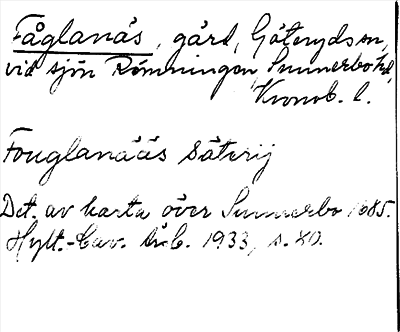 Fåglanäs, gård, Göterydssn,
vid sjön Römningen, Sunnerbo hd,
Kronob. l.
Fouglanääs Säterij
Det. av karta över Sunnerbo 1685.
Hylt.-Cav. Årb. 1933, s. 80.